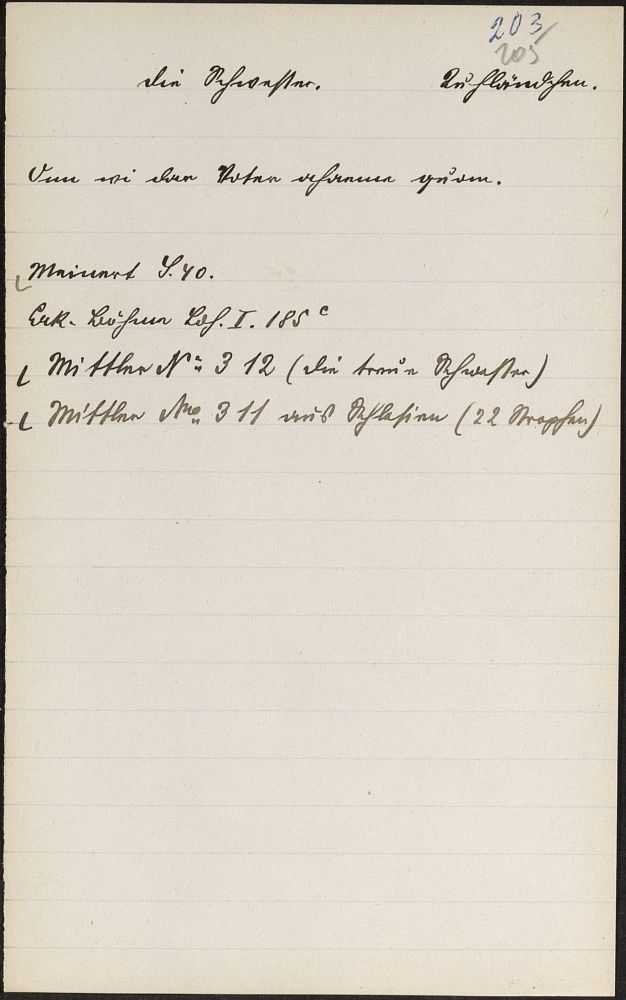 203
205
die Schwester. Kuhländchen.
Onn wi dar Voter ahaeme quam.
Meinert S. 40.
Erk-Böhme Ldh. I. 185 c
Mittler No 312 (die treue Schwester)
Mittler No 311 aus Schlesien (22 Strophen)